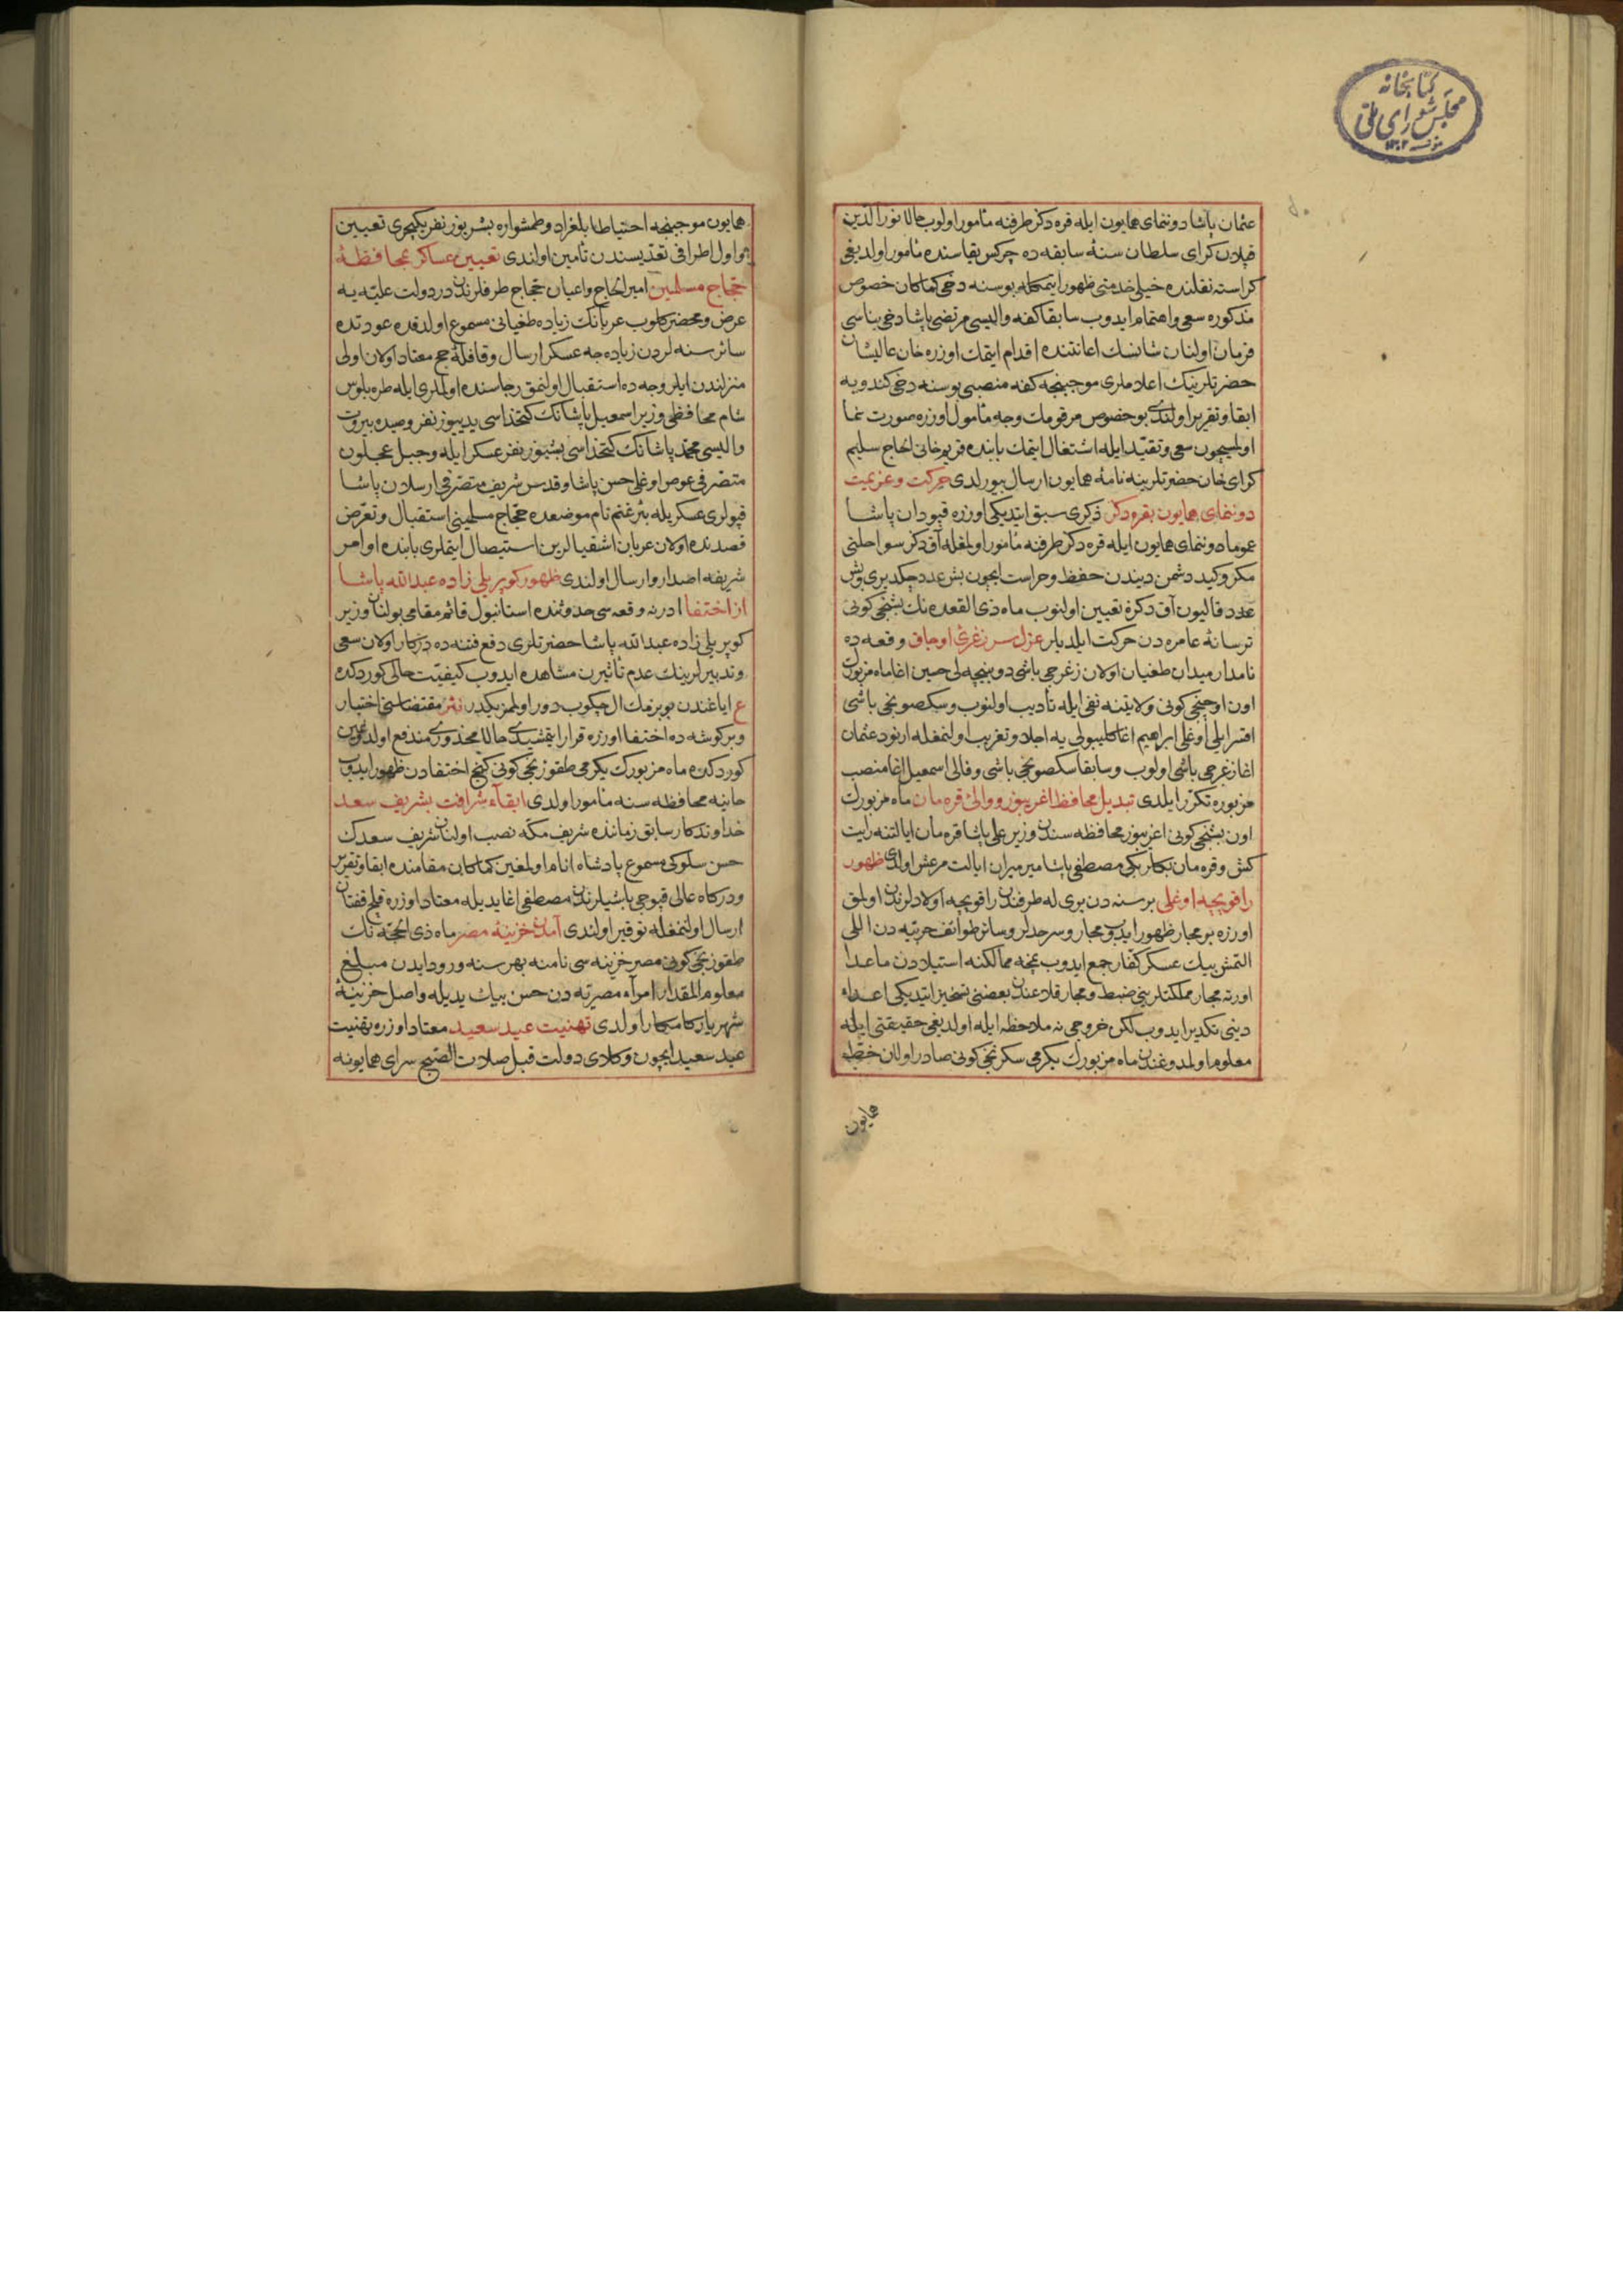 کتابخانه
مجلس شورای ملی
عثمان پاشا دوننمای همایون ایله قره دکز طرفنه مأمور اولوب حالا نورالدین
قپلان کرای سلطان سنهٔ سابقه ده چرکس یقاسنده مأمور اولدیغی
کراسته نقلنده خیلی خدمتی ظهور ایتمکله بو سنه دخی کماکان خصوص
مذکوره سعی واهتمام ایدوب سابقا کفه والیسی مرتضی پاشا دخی بناسی
فرمان اولنان شانسک اعانتنده اقدام ایتمک اوزره خان عالیشان
حضرتلرینک اعلاملری موجبنجه کفه منصبی بو سنه دخی کندویه
ابقا وتقریر اولندی بو خصوص مرقومک وجه مأمول اوزره صورت نما
اولمسیچون سعی وتقید ایله اشتغال ایتمک بابنده قریم خانی الحاج سلیم
کرای خان حضرتلرینه نامهٔ همایون ارسال بیورلدی حرکت وعزیمت
دوننمای همایون بقره دکز ذکری سبق ایتدیکی اوزره قپودان پاشا
عموما دوننمای همایون ایله قره دکز طرفنه مأمور اولمغله آق دکز سواحلنی
مکر وکید دشمن دیندن حفظ وحراست ایچون بش عدد چکدیری وبش
عدد قالیون آق دکزه تعیین اولنوب ماه ذی القعده نک بشنجی کونی
ترسانهٔ عامره دن حرکت ایلدیلر عزل سر زغرئ اوجاق وقعه ده
نامدار میدان طغیان اولان زغرجی باشی دوینیجه لی حسین اغا ماه مزبورک
اون اوچنجی کونی ولایتنه نفی ایله تأدیب اولنوب وسکصونجی باشی
اقسرایلی اوغلی ابراهیم اغا کلیبولی یه اجلا وتغریب اولنمغله ارنود عثمان
اغا زغرجی باشی اولوب وسابقا سکصونجی باشی وفالی اسمعیل اغا منصب
مزبوره تکرر ایلدی تبدیل محافظ اغریبوز ووالئ قره مان ماه مزبورک
اون بشنجی کونی اغریبوز محافظه سندن وزیر علی پاشا قره مان ایالتنه رایت
کش وقره مان بکلربکی مصطفی پاشا میر میران ایالت مرعش اولدی ظهور
راقویچیه اوغلی بر سنه دن بری له طرفندن راقویچیه اولادلرندن اولمق
اوزره بر مجار ظهور ایدوب مجار وسرحدلر وسائر طوائف حربیه دن اللی
التمش بیک عسکر کفار جمع ایدوب نمچه ممالکنه استیلادن ماعدا
اورته مجار مملکتلرینی ضبط ومجار قلاعندن بعضنی تسخیر ایتدیکی اعداء
دینی تکدیر ایدوب لکن خروجی نه ملاحظه ایله اولدیغی حقیقتی ایله
معلوم اولمدوغندن ماه مزبورک یکرمی سکزنجی کونی صادر اولان خط
همایون
همایون موجبنجه احتیاطا بلغراد وطمشواره بشر یوز نفر یکیچری تعیین
واول اطرافی تعدیسندن تأمین اولندی تعیین عساکر بمحافظهٔ
حجاج مسلمین امیر الحاج واعیان حجاج طرفلرندن در دولت علیه یه
عرض ومحضر کلوب عربانک زیاده طغیانی مسموع اولدقده عودتده
سائر سنه لردن زیاده جه عسکر ارسال وقافلهٔ حج معتاد اولان اولی
منزلندن ایلرو جه ده استقبال اولنمق رجاسنده اولملری ایله طره بلوس
شام محافظی وزیر اسمعیل پاشانک کتخداسی یدییوز نفر وصیده بیروت
والیسی محمد پاشانک کتخداسی بشیوز نفر عسکر ایله وجبل عجلون
متصرفی عوص اوغلی حسن پاشا وقدس شریف متصرفی ارسلان پاشا
قپولری عسکریله بئر غنم نام موضعده حجاج مسلمینی استقبال وتعرض
قصدنده اولان عربان اشقیالرین استیصال ایتملری بابنده اوامر
شریفه اصدار وارسال اولندی ظهور کوپریلی زاده عبدالله پاشا
از اختفا ادرنه وقعه سی حدوثنده استانبول قائم مقامی بولنان وزیر
کوپریلی زاده عبدالله پاشا حضرتلری دفع فتنه ده درکار اولان سعی
وتدبیرلرینک عدم تأثیرن مشاهده ایدوب کیفیت حالی کوردکده
ع ایاغندن بویزمک ال چکوب دور اولمز یکدر نثر مقتضاسنی اختیار
وبر کوشه ده اختفا اوزره قرار ایتمشیدی حالا محذوری مندفع اولدوغین
کوردکده ماه مزبورک یکرمی طقوزنجی کونی کنج اختفادن ظهور ایدوب
حانیه محافظه سنه مأمور اولدی ابقاء شرافت بشریف سعد
خداوندکار سابق زماننده شریف مکه نصب اولنان شریف سعدک
حسن سلوکی مسموع پادشاه انام اولمغین کماکان مقامنده ابقا وتقریر
ودرکاه عالی قپوجی باشیلرندن مصطفی اغا یدیله معتاد اوزره قلج قفتان
ارسال اولنمغله توقیر اولندی آمدن خزینهٔ مصر ماه ذی الحجه نک
طقوزنجی کونی مصر خزینه سی نامنه بهر سنه ورود ایدن مبلغ
معلوم المقدار امراء مصریه دن حسن بیک یدیله واصل خزینهٔ
شهریار کامکار اولدی تهنیت عید سعید معتاد اوزره تهنیت
عید سعید ایچون وکلای دولت قبل صلات الصبح سرای همایونه